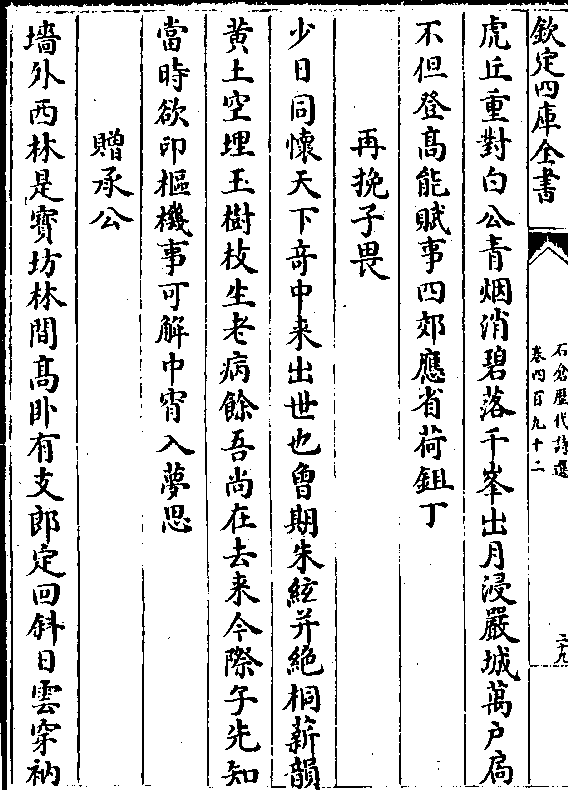 欽定四庫全書
石倉歷代詩選
卷四百九十二
二十九
虎丘重對白公青烟消碧落千峯出月浸嚴城萬戶扃
不但登高能賦事四郊應省荷鉏丁
再挽子畏
少日同懷天下奇中来出世也曾期朱絃并絕桐薪韻
黄土空埋玉樹枝生老病餘吾尚在去来今際子先知
當時欲印樞機事可解中宵入夢思
贈承公
墻外西林是寳坊林間髙卧有支郎定回斜日雲穿衲